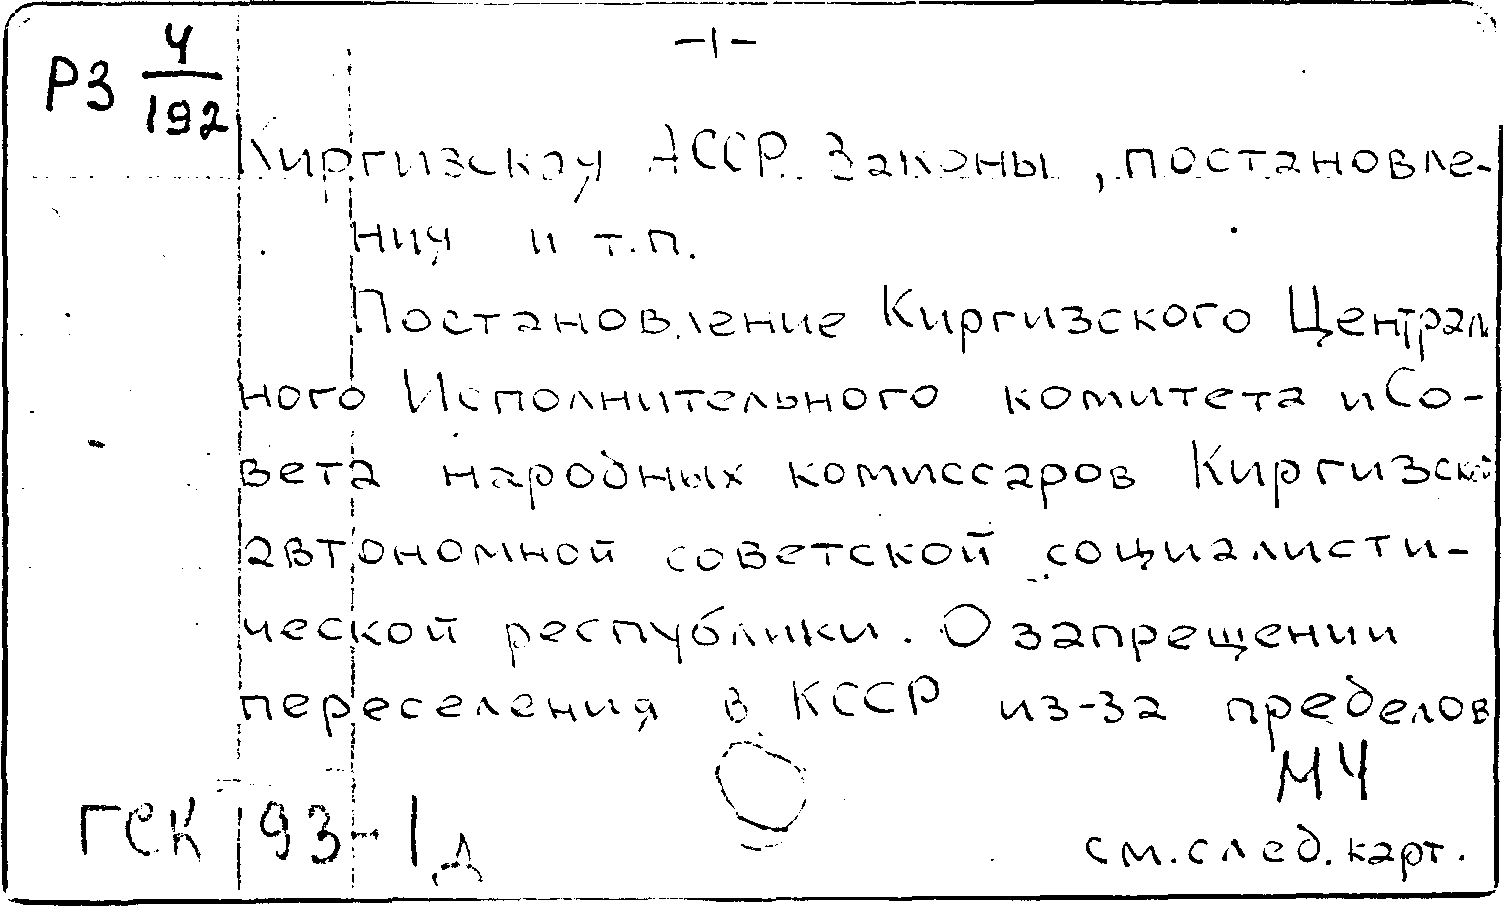 -1-
РЗ 4/192
Киргизская АССР. Законы, постановле-
ния и т.п.
Постановление Киргизского Централ
ного Исполнительного комитета и Со-
вета народных комиссаров Киргизской
автономной советской социалисти-
ческой республики. О запрещении
переселения в КССР из-за пределов
МЧ
ГСК 93-1д
см.след.карт.